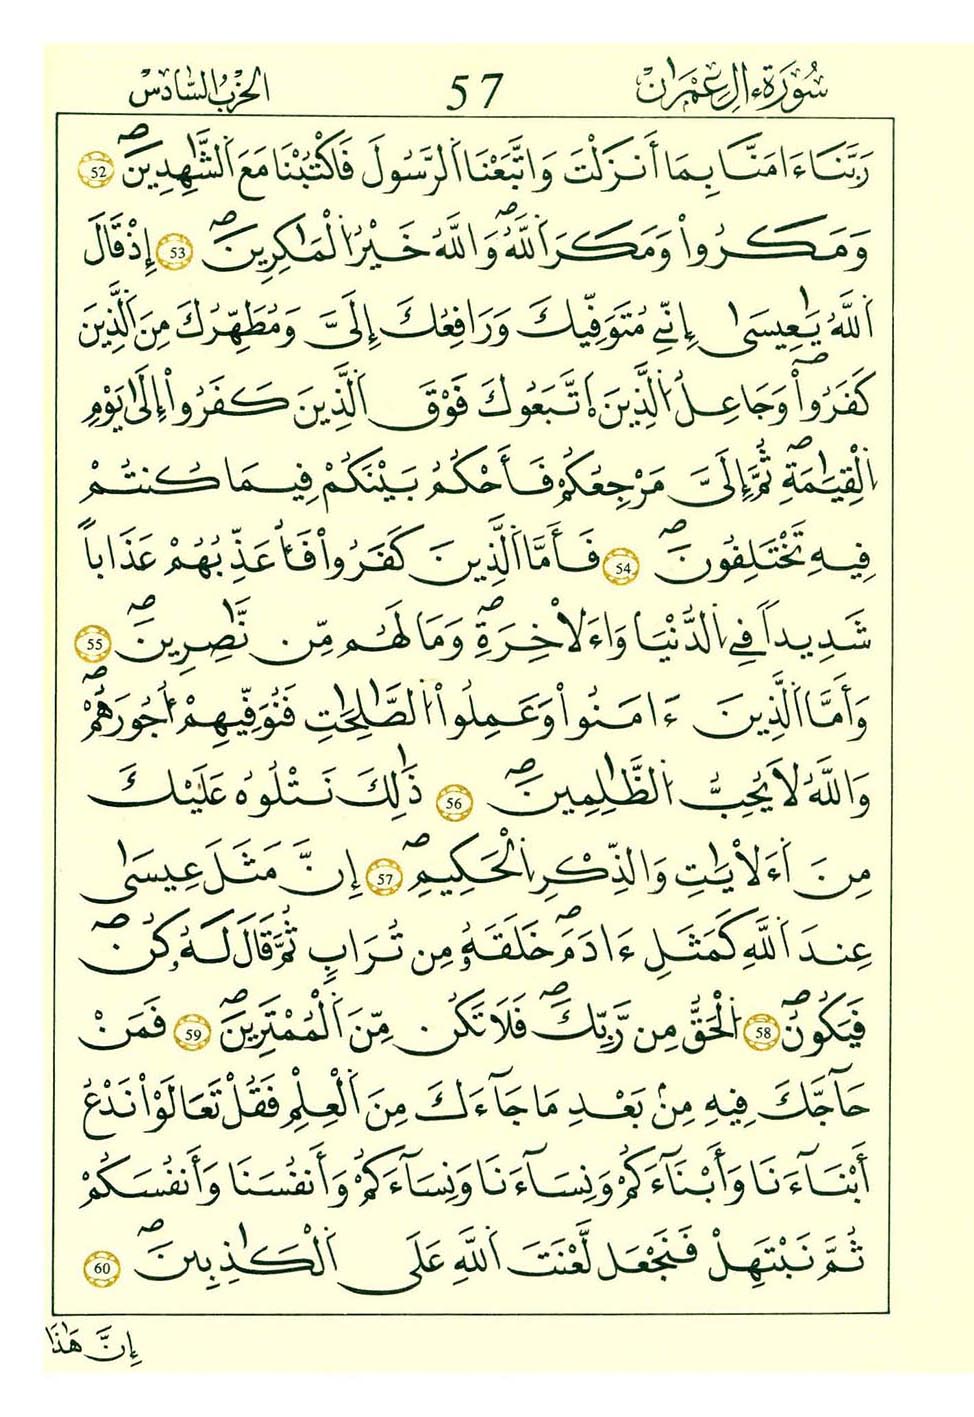 سُورَةُ ءَالِ عِمْرَانَ 57 الحِزْبُ السَّادِسُ
رَبَّنَا ءَامَنَّا بِمَا أَنزَلْتَ وَاتَّبَعْنَا اَلرَّسُولَ فَاكْتُبْنَا مَعَ اَلشَّٰهِدِينَۖ 52
وَمَكَرُواْ وَمَكَرَ اَللَّهُۖ وَاللَّهُ خَيْرُ اُلْمَٰكِرِينَۖ 53 إِذْ قَالَ
اَللَّهُ يَٰعِيسَىٰ إِنِّے مُتَوَفِّيكَ وَرَافِعُكَ إِلَىَّ وَمُطَهِّرُكَ مِنَ اَلَّذِينَ
كَفَرُواْۖ وَجَاعِلُ اُلَّذِينَ اَتَّبَعُوكَ فَوْقَ اَلَّذِينَ كَفَرُواْ إِلَىٰ يَوْمِ
اِلْقِيَٰمَةِۖ ثُمَّ إِلَىَّ مَرْجِعُكُمْ فَأَحْكُمُ بَيْنَكُمْ فِيمَا كُنتُمْ
فِيهِ تَخْتَلِفُونَۖ 54 فَأَمَّا اَلَّذِينَ كَفَرُواْ فَأُعَذِّبُهُمْ عَذَاباً
شَدِيداً فِے اِلدُّنْيَا وَاءَلْاخِرَةِۖ وَمَا لَهُم مِّن نَّٰصِرِينَۖ 55
وَأَمَّا اَلَّذِينَ ءَامَنُواْ وَعَمِلُواْ اُلصَّٰلِحَٰتِ فَنُوَفِّيهِمْ أُجُورَهُمْۖ
وَاللَّهُ لَا يُحِبُّ اُلظَّٰلِمِينَۖ 56 ذَٰلِكَ نَتْلُوهُ عَلَيْكَ
مِنَ اَءَلْايَٰتِ وَالذِّكْرِ اِلْحَكِيمِۖ 57 إِنَّ مَثَلَ عِيسَىٰ
عِندَ اَللَّهِ كَمَثَلِ ءَادَمَۖ خَلَقَهُۥ مِن تُرَابٍ ثُمَّ قَالَ لَهُۥ كُنۖ
فَيَكُونُۖ 58 اُلْحَقُّ مِن رَّبِّكَۖ فَلَا تَكُن مِّنَ اَلْمُمْتَرِينَۖ 59 فَمَنْ
حَآجَّكَ فِيهِ مِنۢ بَعْدِ مَا جَآءَكَ مِنَ اَلْعِلْمِ فَقُلْ تَعَالَوْاْ نَدْعُ
أَبْنَآءَنَا وَأَبْنَآءَكُمْ وَنِسَآءَنَا وَنِسَآءَكُمْ وَأَنفُسَنَا وَأَنفُسَكُمْ
ثُمَّ نَبْتَهِلْ فَنَجْعَل لَّعْنَتَ اَللَّهِ عَلَى اَلْكَٰذِبِينَۖ 60
إِنَّ هَٰذَا